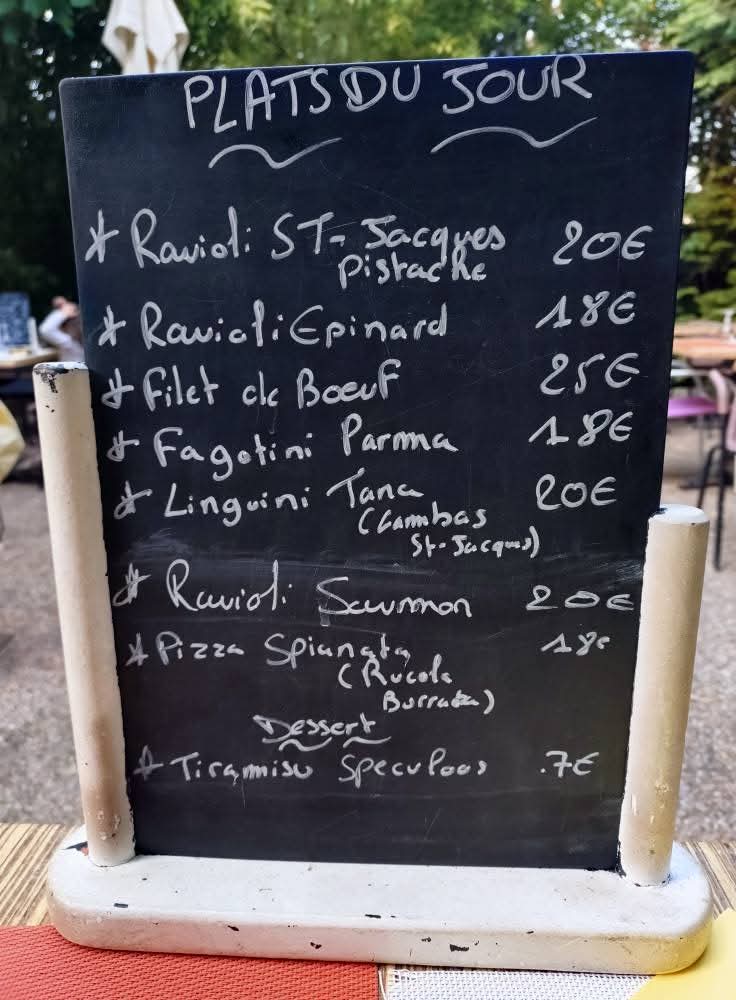 PLATS DU JOUR
* Ravioli ST-Jacques 20€
Pistache
* Ravioli Epinard 18€
* Filet de Boeuf 25€
* Fagotini Parma 18€
* Linguini Tana 20€
(Gambas
St-Jacques)
* Ravioli Saumon 20€
* Pizza Spianata 18€
(Rucola
Burrata)
Dessert
* Tiramisu Speculoos 7€